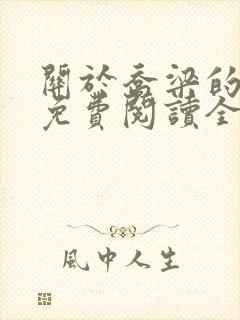 關於喬梁的
免費閱讀全
風中人生